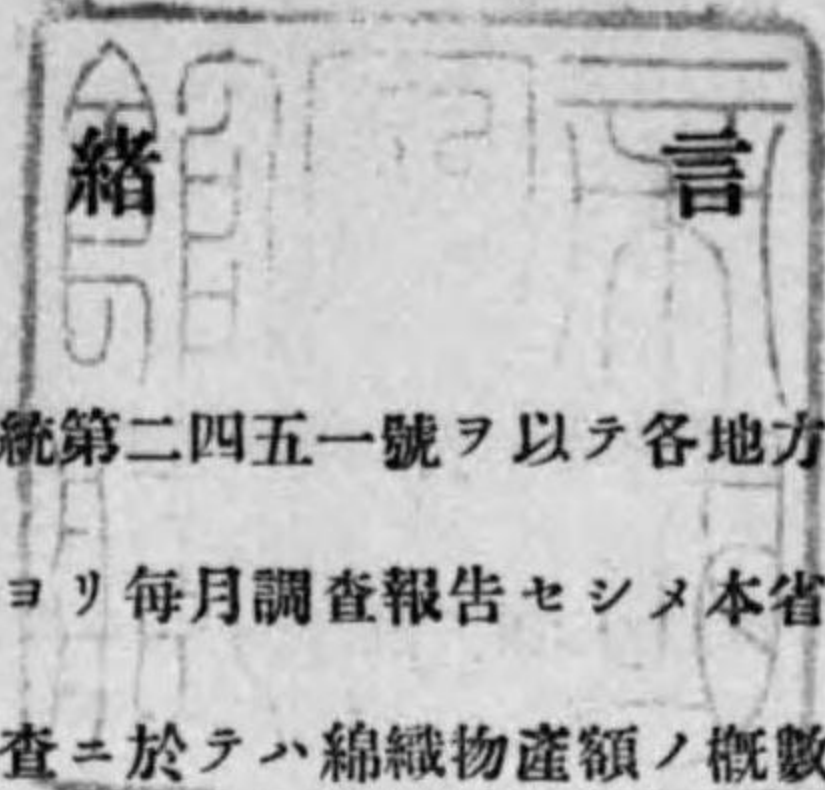 緒言
統第二四五一號ヲ以テ各地方
ヨリ每月調查報告セシメ本省
查ニ於テハ綿織物產額ノ概數